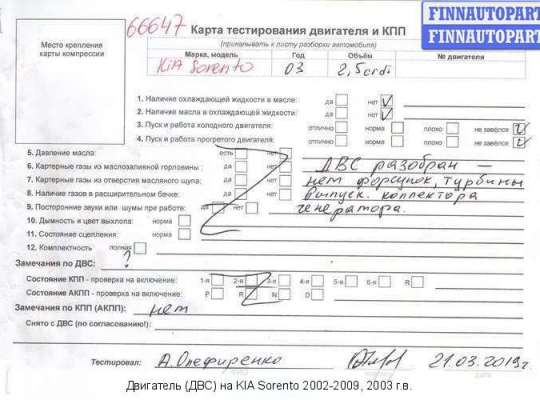 FINNAUTOPART
FINNAUTOPART
Место крепления
карты компрессии
66647 Карта тестирования двигателя и КПП
(прикалывать к листу разборки автомобиля)
Марка, модель Год Объём № двигателя
KiA Sorento 03 2,5crdi
1. Наличие охлаждающей жидкости в масле: да нет V
2. Наличие масла в охлаждающей жидкости: да нет V
3. Пуск и работа холодного двигателя: отлично норма плохо не завёлся V
4. Пуск и работа прогретого двигателя: отлично норма плохо не завёлся V
5. Давление масла: есть нет
6. Картерные газы из маслозаливной горловины: да нет ДВС разобран —
7. Картерные газы из отверстия масляного щупа: да нет нет форсунок, турбины
8. Наличие газов в расширительном бачке: да нет выпуск. коллектора
9. Посторонние звуки или шумы при работе: да нет генератора.
10. Дымность и цвет выхлопа: норма
11. Состояние сцепления: норма
12. Комплектность полная
Замечания по ДВС: ?
Состояние КПП - проверка на включение: 1-я 2-я 3-я 4-я 5-я 6-я R
Состояние АКПП - проверка на включение: P R N D
Замечания по КПП (АКПП): нет
Снято с ДВС (по согласованию!):
Тестировал: А.Олефиренко 21.03.2019г
Двигатель (ДВС) на KIA Sorento 2002-2009, 2003 г.в.